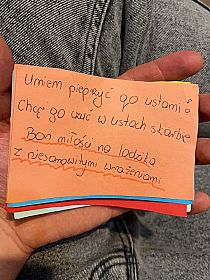 Umiem pieprzyć go ustami i
Chcę go czuć w ustach skarbie
Bon miłości na lodzika
z niesamowitymi wrażeniami